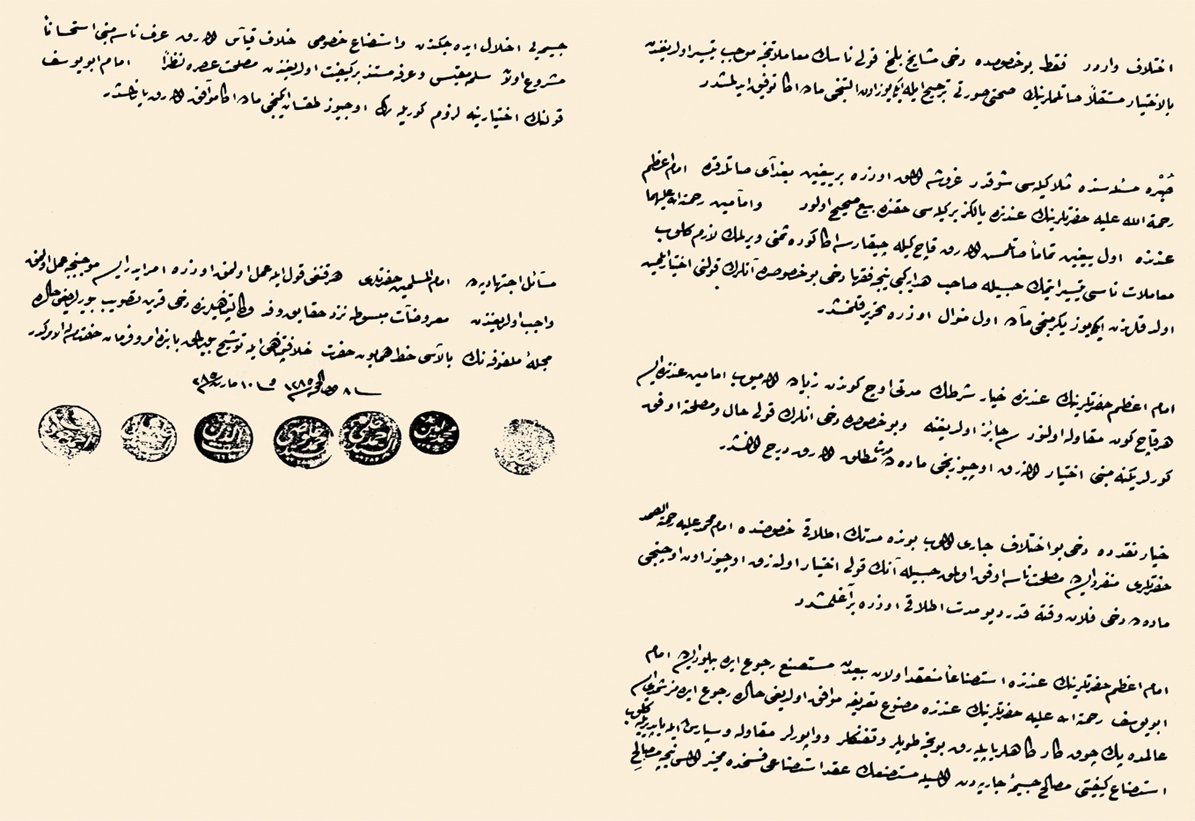 اختلاف وارد فقط بو خصوصده دخی مشایخ بلخ قولی ناسك معاملاتنجه موجب تیسیر اولدیغندن
بالاختیار مستقلاً صاتلملرینك صحتی صورتی ترجیح ایله ایكیوز اون التنجی ماده اكا توفیق ایدلمشدر
صُبْره مسئله‌سنده مثلا كیله‌سی شو قدر غروشه اولمق اوزره بر ییغین بغدای صاتلدقده امام اعظم
رحمة الله علیه حضرتلرینك عندنده یالكز بر كیله‌سی حقنده بیع صحیح اولور وامامین رحمة الله علیهما
عندنده اول ییغین تماماً صاتلمش اوله‌رق قاچ كیله چیقارسه اكا كوره ثمنی ویرلمك لازم كلوب
معاملات ناسی تیسیر ایتمك حسبیله صاحب هدایه كبی نیجه فقها دخی بو خصوصده آنلرك قولنی اختیار ایتمش
اولدقلرندن ایكیوز یكرمنجی ماده اول منوال اوزره تحریر قلنمشدر
امام اعظم حضرتلرینك عندنده خیار شرطك مدتی اوچ كوندن زیاده اولمیوب امامین عندنده ایسه
هر قاچ كون مقاوله اولنور سه جائز اولدیغنه وبو خصوصده دخی انلرك قولی حال ومصلحته اوفق
كورلدیكنه مبنی اختیار اولنه‌رق اوچیوزنجی ماده‌ده مدت مطلق اوله‌رق درج اولنمشدر
خیار نقدده دخی بو اختلاف جاری اولوب بونده مدتك اطلاقی خصوصنده امام محمد علیه رحمة الصمد
حضرتلری منفرد ایسه‌ده مصلحت ناسه اوفق اولمق حسبیله آنك قولی اختیار اولنه‌رق اوچیوز اون اوچنجی
ماده‌ده دخی فلان وقته قدر دیو مدت اطلاقی اوزره براغلمشدر
امام اعظم حضرتلرینك عندنده استصناعاً منعقد اولان بیعدن مستصنع رجوع ایده بیلور ایسه‌ده امام
ابو یوسف رحمة الله علیه حضرتلرینك عندنده مصنوع تعریفه موافق اولدیغی حالده رجوع ایده‌مز شمدی ایسه
عالمده پك چوق كارخانه‌لر یاپیله‌رق بونجه طوپلر وتفنكلر وواپورلر مقاوله وسپارش ایله یاپدیریله كلوب
استصناع كیفیتی مصالح جسیمهٔ جاریه‌دن اولمسیله مستصنعك عقد استصناعی فسخده مخیر اولمسی نیجه مصالح
جسیمه‌یی اخلال ایده جكندن واستصناع خصوصی خلاف قیاس اوله‌رق عرف ناسه مبنی استحساناً
مشروع اولوش سلمه مقیس وعرفه مستند بر كیفیت اولدیغندن مصلحت عصره نظراً امام ابو یوسف
قولنك اختیارینه لزوم كوریله‌رك اوچیوز طقسان ایكنجی ماده اكا موافق اوله‌رق یازلمشدر
مسائل اجتهادیه‌ده امام المسلمین حضرتلری هر قنغی قول ایله عمل اولنمق اوزره امر ایدر ایسه موجبنجه عمل اولنمق
واجب اولدیغندن معروضات مبسوطه نزد حقایق وفد وكالتپناهیلرنده دخی قرین تصویب بیوریلدیغی حالده
مجلهٔ ملفوفه‌نك بالاسی خط همایون حضرت خلافتپناهی ایله توشیح بیورلمق بابنده امر وفرمان حضرت ولی الامركدر
فی ٨ ذی الحجه سنه ١٢٨٥ وفی ١٠ مارت سنه ٢٨٥